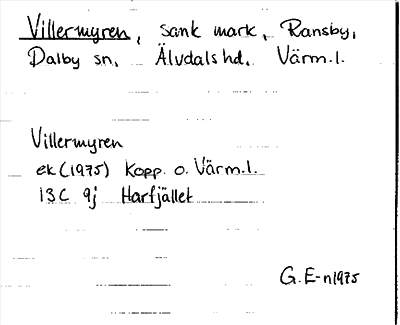 Villermyren, sank mark, Ransby,
Dalby sn. Älvdals hd. Värm.l.
Villermyren
ek (1975) Kopp. o. Värm.l.
13C 9j Harfjället
G. E-n 1975